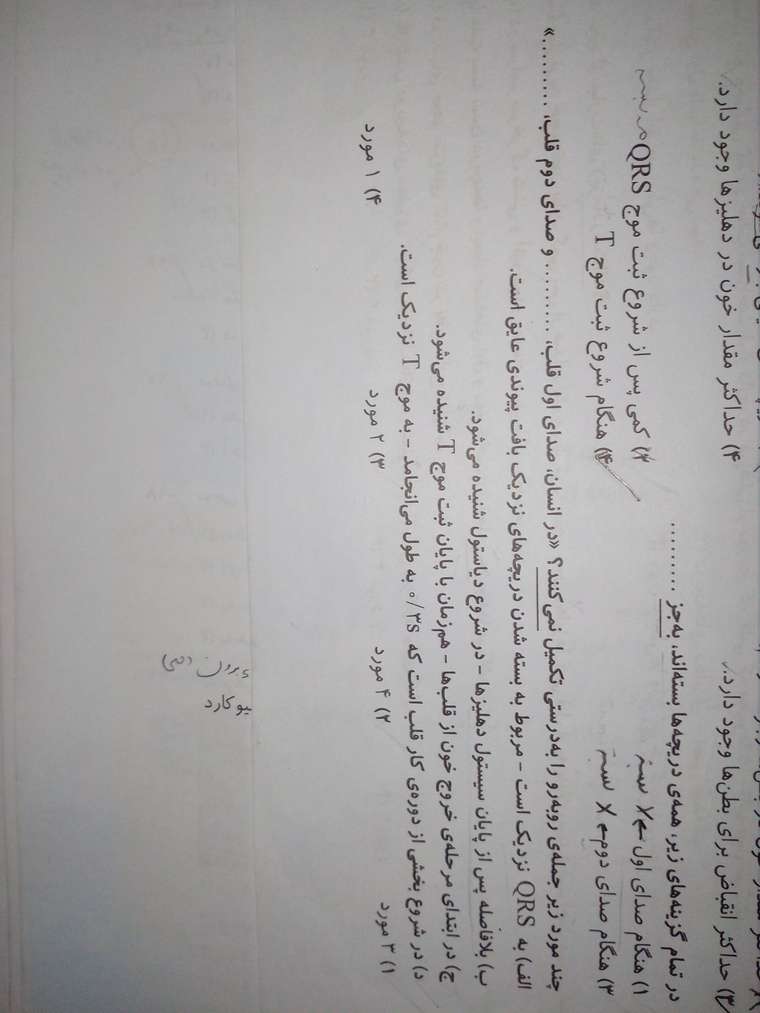 ۳) حداکثر انقباض برای بطن‌ها وجود دارد. ۴) حداکثر مقدار خون در دهلیزها وجود دارد.
در تمام گزینه‌های زیر، همه‌ی دریچه‌ها بسته‌اند، به‌جز ..........
۱) هنگام صدای اول ۲) کمی پس از شروع ثبت موج QRS
۳) هنگام صدای دوم ۴) هنگام شروع ثبت موج T
چند مورد زیر جمله‌ی روبه‌رو را به‌درستی تکمیل نمی‌کنند؟ «در انسان، صدای اول قلب، .......... و صدای دوم قلب، ..........»
الف) به QRS نزدیک است - مربوط به بسته شدن دریچه‌های نزدیک بافت پیوندی عایق است.
ب) بلافاصله پس از پایان سیستول دهلیزها - در شروع دیاستول شنیده می‌شود.
ج) در ابتدای مرحله‌ی خروج خون از قلب‌ها - هم‌زمان با پایان ثبت موج T شنیده می‌شود.
د) در شروع بخشی از دوره‌ی کار قلب است که ۰/۳s به طول می‌انجامد - به موج T نزدیک است.
۱) ۳ مورد ۲) ۴ مورد ۳) ۲ مورد ۴) ۱ مورد